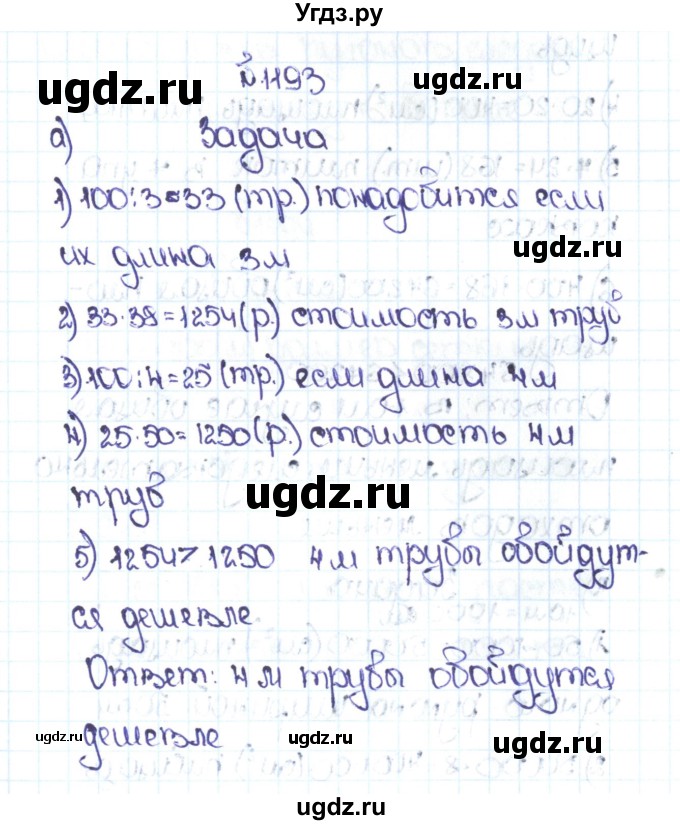 Угдз.ру
№1193
ugdz.ru
а) Задача
1) 100:3≈33 (тр.) понадобится если
их длина 3м
ugdz.ru
2) 33·38=1254(р.) стоимость 3м труб
3) 100:4=25 (тр.) если длина 4м
4) 25·50=1250(р.) стоимость 4м
труб
ugdz.ru
5) 1254>1250 4м трубы обойдут-
ся дешевле
Ответ: 4м трубы обойдутся
ugdz.ru
дешевле
ugdz.ru
ugdz.ru
ugdz.ru